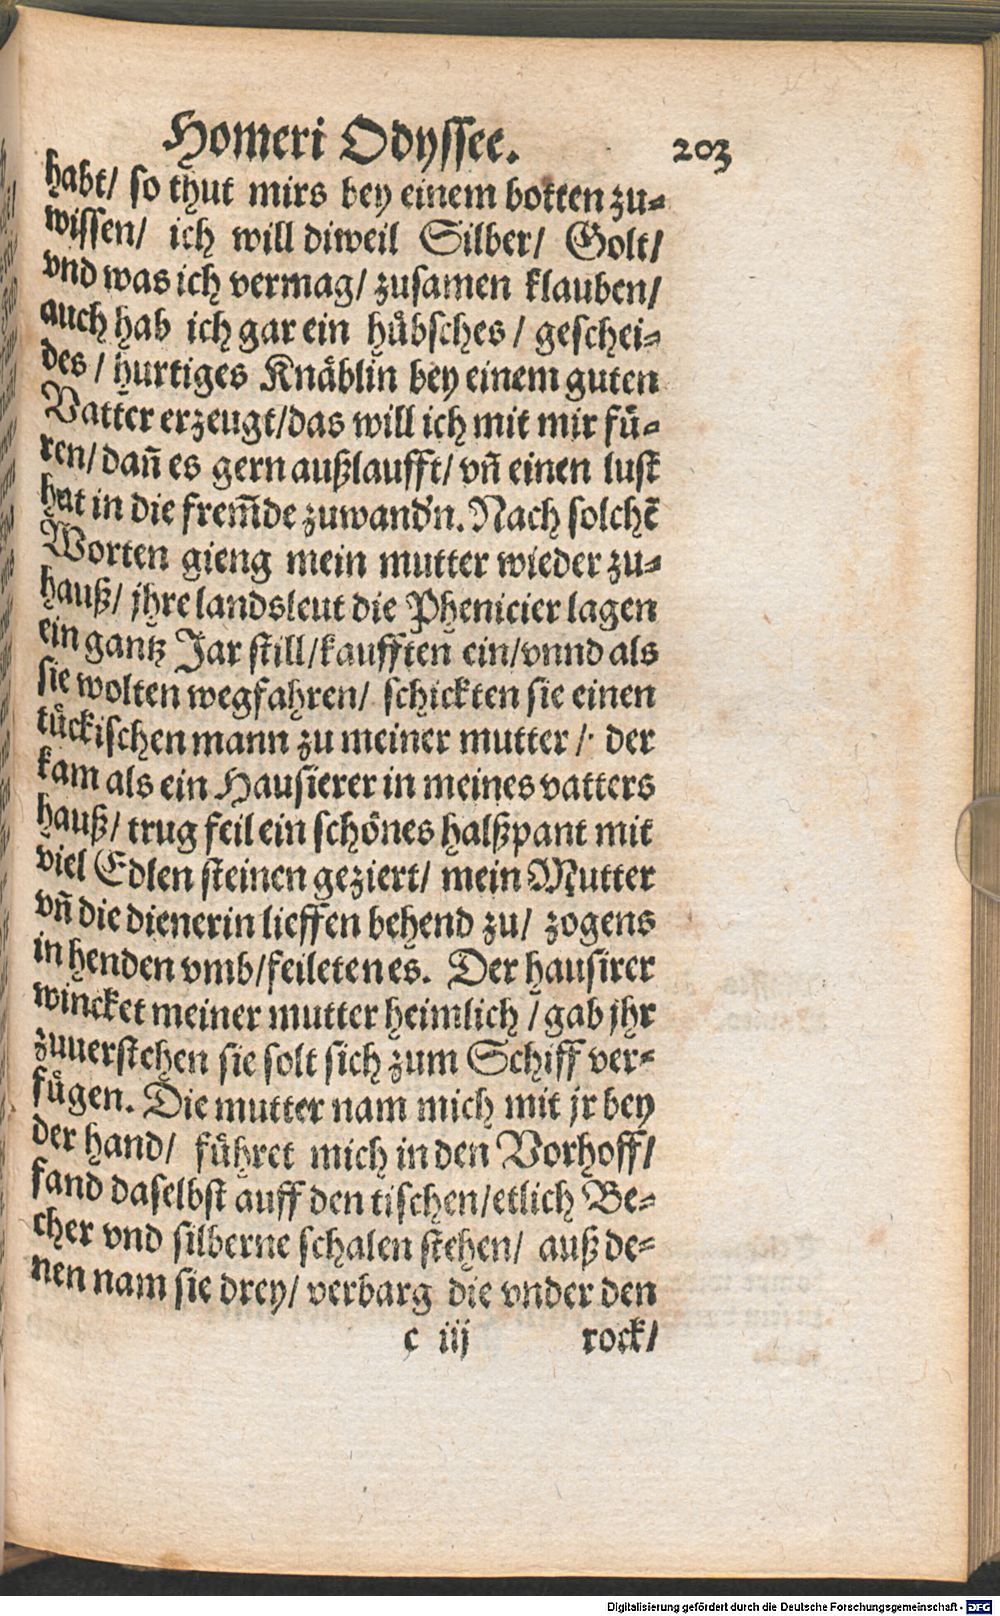 Homeri Odyssee. 203
habt/ so thut mirs bey einem botten zu⸗
wissen/ ich will diweil Silber/ Golt/
vnd was ich vermag/ zusamen klauben/
auch hab ich gar ein hübsches/ geschei⸗
des/ hurtiges Knäblin bey einem guten
Vatter erzeugt/das will ich mit mir fü⸗
ren/ dañ es gern außlaufft/ vñ einen lust
hat in die frem̃de zuwand'n. Nach solchē
Worten gieng mein mutter wieder zu⸗
hauß/ jhre landsleut die Phenicier lagen
ein gantz Jar still/kaufften ein/vnnd als
sie wolten wegfahren/ schickten sie einen
tückischen mann zu meiner mutter/ der
kam als ein Hausierer in meines vatters
hauß/ trug feil ein schönes halßpant mit
viel Edlen steinen geziert/ mein Mutter
vñ die dienerin lieffen behend zu/ zogens
in henden vmb/feileten es. Der hausirer
wincket meiner mutter heimlich/ gab jhr
zuuerstehen sie solt sich zum Schiff ver⸗
fügen. Die mutter nam mich mit jr bey
der hand/ führet mich in den Vorhoff/
fand daselbst auff den tischen/etlich Be⸗
cher vnd silberne schalen stehen/ auß de⸗
nen nam sie drey/ verbarg die vnder den
c iij rock/
Digitalisierung gefördert durch die Deutsche Forschungsgemeinschaft - DFG